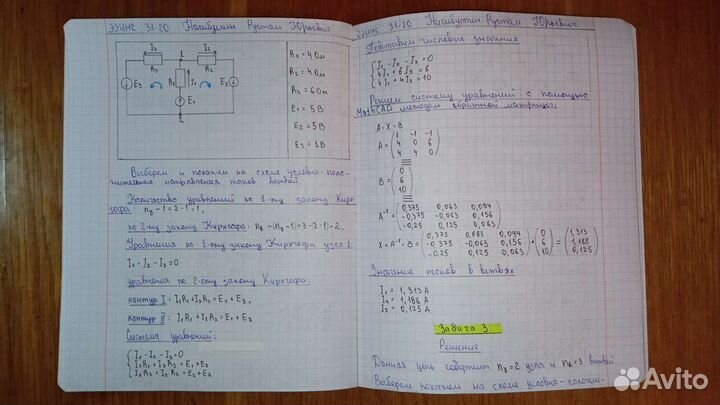 ЭЭИНС 31-20 Насибулин Рустам Юрьевич
I3 1 I2
R3 R2
E3 R1 I1 E2
E1
R1 = 4 Ом
R2 = 4 Ом
R3 = 6 Ом
E1 = 5 В
E2 = 5 В
E3 = 1 В
Выберем и покажем на схеме условно-поло-
жительные направления токов ветвей.
Количество уравнений по 1-му закону Кирх-
гофа: ny - 1 = 2 - 1 = 1,
по 2-му закону Кирхгофа: nb - (ny - 1) = 3 - (2 - 1) = 2.
Уравнения по 1-ому закону Кирхгофа узел 1:
I1 - I2 - I3 = 0
уравнения по 2-ому закону Кирхгофа:
контур I: I1R1 + I3R3 = E1 + E3,
контур II: I1R1 + I2R2 = E1 + E2
Система уравнений:
I1 - I2 - I3 = 0
I1R1 + I3R3 = E1 + E3
I1R1 + I2R2 = E1 + E2
ЭЭИНС 31-20 Насибулин Рустам Юрьевич
Подставим числовые значения
I1 - I2 - I3 = 0
4I1 + 6I3 = 6
4I1 + 4I2 = 10
Решаем систему уравнений с помощью
MathCAD методом обратной матрицы:
A · X = B
A = (1 -1 -1
4 0 6
4 4 0)
B = (0
6
10)
A⁻¹ = (0,375 0,063 0,094
-0,375 -0,063 0,156
-0,25 0,125 0,063)
X = A⁻¹ · B = (0,375 0,063 0,094
-0,375 -0,063 0,156
-0,25 0,125 -0,063) · (0
6
10) = (1,313
1,188
0,125)
Значение токов в ветвях
I1 = 1,313 А
I2 = 1,188 А
I3 = 0,125 А
Задача 3
Решение
Данная цепь содержит ny = 2 узла и nb = 3 ветвей
Выберем покажем на схеме условно-положи-
Avito